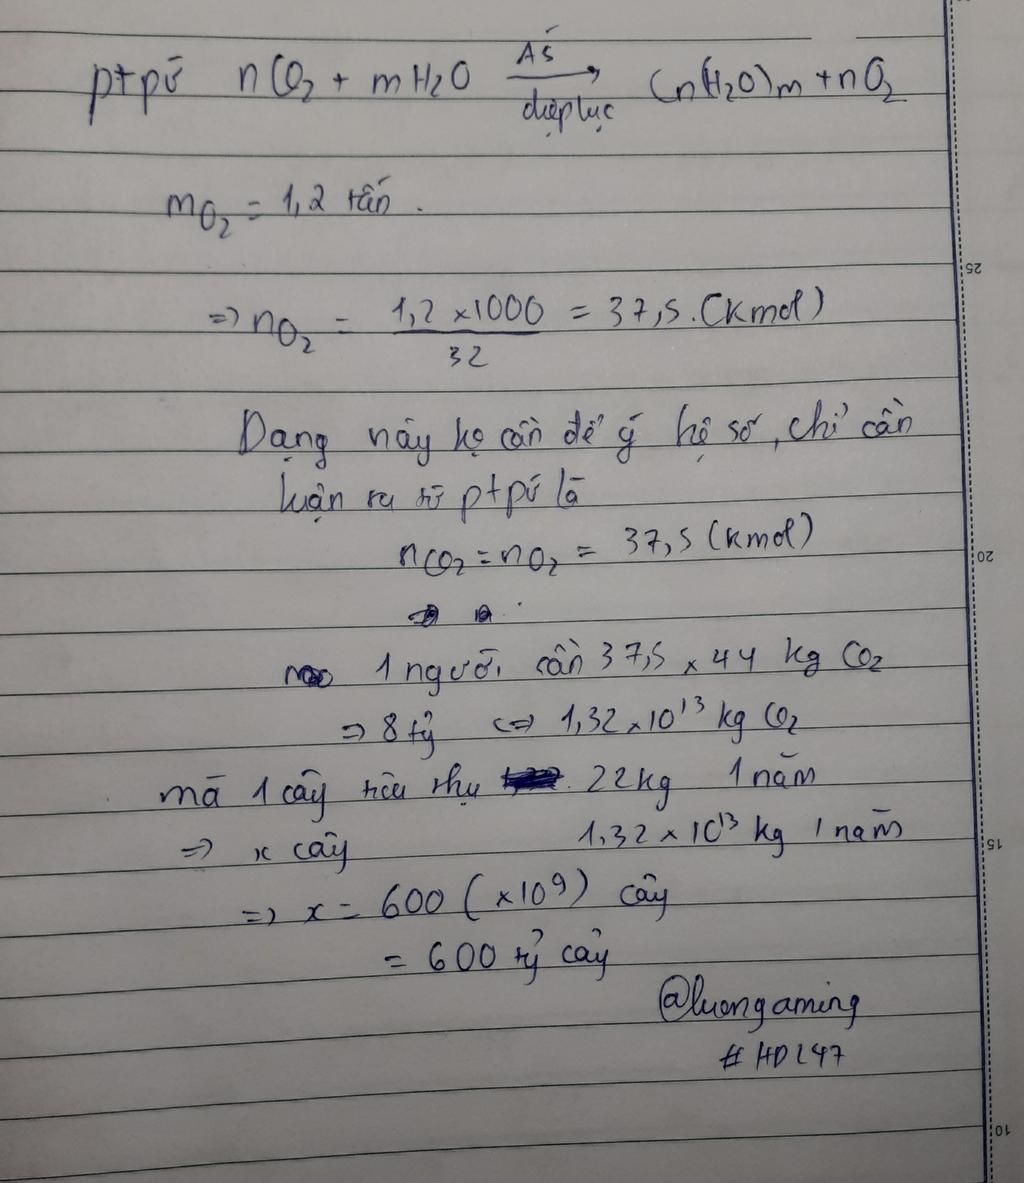 ptpứ nCO2 + mH2O
AS
→
diệp lục
Cn(H2O)m + nO2
mO2 = 1,2 tấn.
⇒ nO2 = 1,2 × 1000 / 32 = 37,5. (kmol)
Dạng này ko cần để ý hệ số, chỉ cần
luận ra từ ptpứ là
nCO2 = nO2 = 37,5 (kmol)
1 người cần 37,5 × 44 kg CO2
⇒ 8 tỷ ⇔ 1,32 × 10^13 kg CO2
mà 1 cây tiêu thụ 22kg 1 năm
⇒ x cây 1,32 × 10^13 kg 1 năm
⇒ x = 600 (×10^9) cây
= 600 tỷ cây
@luongaming
#HDL47
25
20
15
10